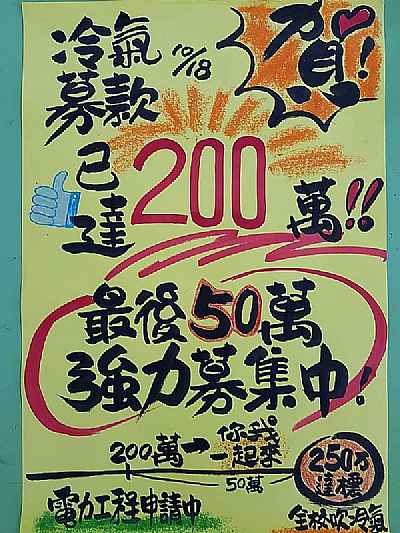 賀!
冷氣 10/18
募款
已達 200 萬!!
最後50萬
強力募集中!
200萬→你我一起來
50萬
250万達標
電力工程申請中
全校吹冷氣